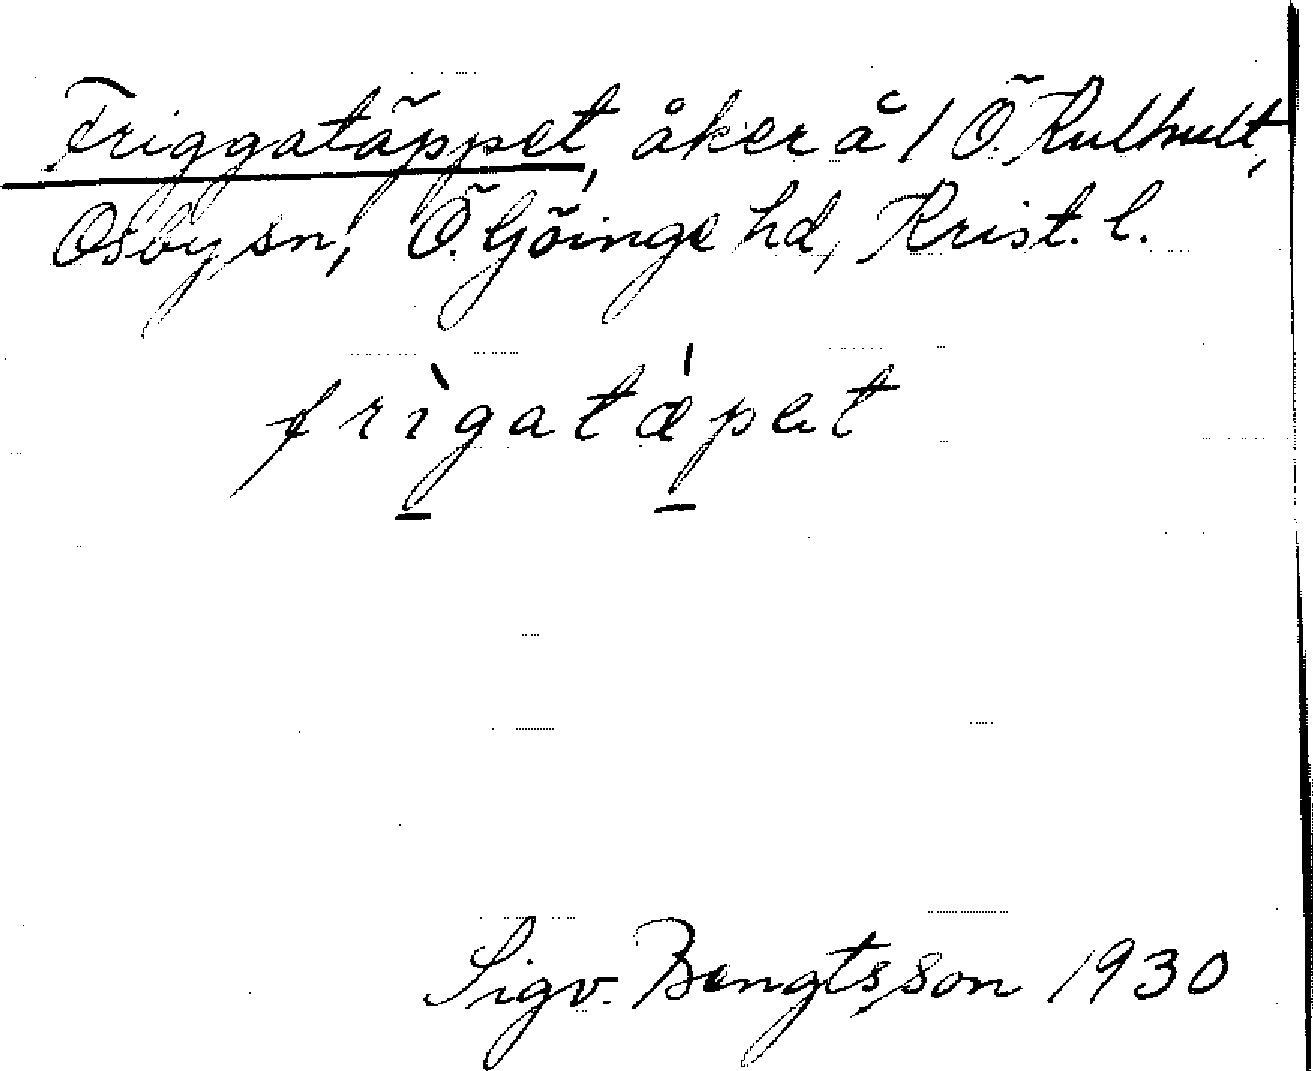 Friggatäppet, åker å 1 Ö. Kulhult,
Osby sn, Ö. Göinge hd, Krist. l.
frìgatǽpet
Sigv. Bengtsson 1930